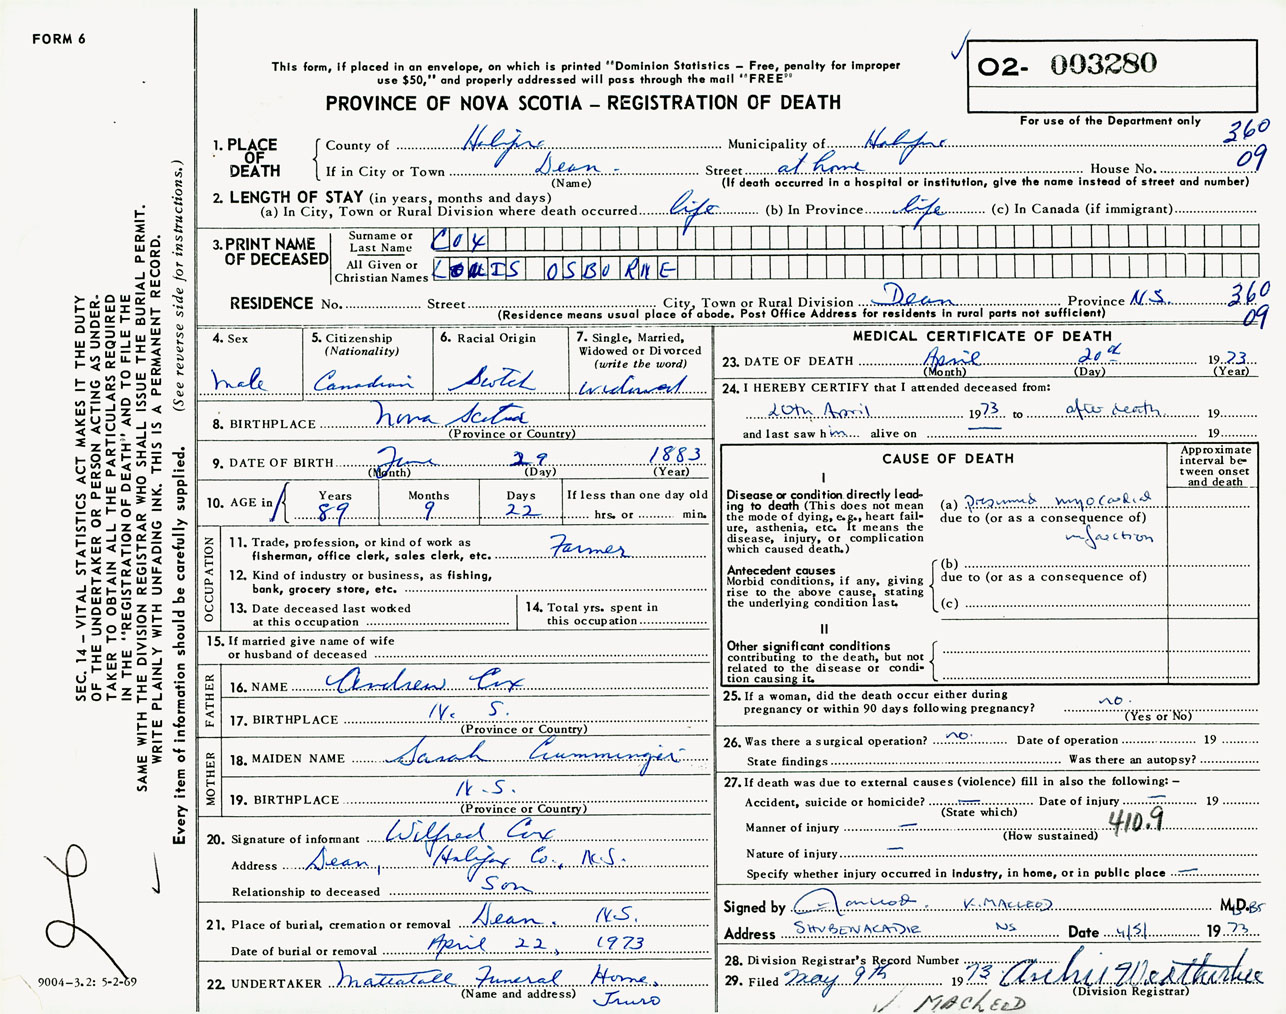 FORM 6
This form, if placed in an envelope, on which is printed "Dominion Statistics – Free, penalty for improper
use $50," and properly addressed will pass through the mail "FREE"
PROVINCE OF NOVA SCOTIA – REGISTRATION OF DEATH
O2- 003280
For use of the Department only
360
09
1. PLACE OF DEATH
County of Halifax Municipality of Halifax
If in City or Town Dean Street at home House No.
(Name) (If death occurred in a hospital or institution, give the name instead of street and number)
2. LENGTH OF STAY (in years, months and days)
(a) In City, Town or Rural Division where death occurred life (b) In Province life (c) In Canada (if immigrant)
3. PRINT NAME OF DECEASED
Surname or Last Name COX
All Given or Christian Names LOUIS OSBORNE
RESIDENCE No. Street City, Town or Rural Division Dean Province N.S. 360
(Residence means usual place of abode. Post Office Address for residents in rural parts not sufficient) 09
4. Sex
Male
5. Citizenship
(Nationality)
Canadian
6. Racial Origin
Scotch
7. Single, Married,
Widowed or Divorced
(write the word)
Widowed
8. BIRTHPLACE Nova Scotia
(Province or Country)
9. DATE OF BIRTH June 29 1883
(Month) (Day) (Year)
10. AGE in Years Months Days If less than one day old
89 9 22 hrs. or min.
OCCUPATION
11. Trade, profession, or kind of work as
fisherman, office clerk, sales clerk, etc. Farmer
12. Kind of industry or business, as fishing,
bank, grocery store, etc.
13. Date deceased last worked
at this occupation
14. Total yrs. spent in
this occupation
15. If married give name of wife
or husband of deceased
FATHER
16. NAME Andrew Cox
17. BIRTHPLACE N. S.
(Province or Country)
MOTHER
18. MAIDEN NAME Sarah Cumminger
19. BIRTHPLACE N.S.
(Province or Country)
20. Signature of informant Wilfred Cox
Address Dean, Halifax Co., N.S.
Relationship to deceased Son
21. Place of burial, cremation or removal Dean. N.S.
Date of burial or removal April 22, 1973
22. UNDERTAKER Mattatall Funeral Home,
(Name and address) Truro
MEDICAL CERTIFICATE OF DEATH
23. DATE OF DEATH April 20th 1973
(Month) (Day) (Year)
24. I HEREBY CERTIFY that I attended deceased from:
20th April 1973 to after death 19
and last saw him alive on 19
CAUSE OF DEATH
Approximate
interval be-
tween onset
and death
I
Disease or condition directly lead-
ing to death (This does not mean
the mode of dying, e.g., heart fail-
ure, asthenia, etc. It means the
disease, injury, or complication
which caused death.)
(a) presumed myocardial
due to (or as a consequence of)
infarction
Antecedent causes
Morbid conditions, if any, giving
rise to the above cause, stating
the underlying condition last.
(b)
due to (or as a consequence of)
(c)
II
Other significant conditions
contributing to the death, but not
related to the disease or condi-
tion causing it.
25. If a woman, did the death occur either during
pregnancy or within 90 days following pregnancy? no.
(Yes or No)
26. Was there a surgical operation? no. Date of operation 19
State findings Was there an autopsy?
27. If death was due to external causes (violence) fill in also the following: –
Accident, suicide or homicide? — Date of injury — 19
(State which)
Manner of injury — 410.9
(How sustained)
Nature of injury —
Specify whether injury occurred in Industry, in home, or in public place —
Signed by V. MACLEOD M.D.
Address SHUBENACADIE NS Date 4/5/ 1973
28. Division Registrar's Record Number
29. Filed May 9th 1973 Archie Weatherbee
(Division Registrar)
V. MACLEOD
SEC. 14 – VITAL STATISTICS ACT MAKES IT THE DUTY
OF THE UNDERTAKER OR PERSON ACTING AS UNDER-
TAKER TO OBTAIN ALL THE PARTICULARS REQUIRED
IN THE "REGISTRATION OF DEATH" AND TO FILE THE
SAME WITH THE DIVISION REGISTRAR WHO SHALL ISSUE THE BURIAL PERMIT.
WRITE PLAINLY WITH UNFADING INK. THIS IS A PERMANENT RECORD.
Every item of information should be carefully supplied. (See reverse side for instructions.)
9004-3.2: 5-2-69